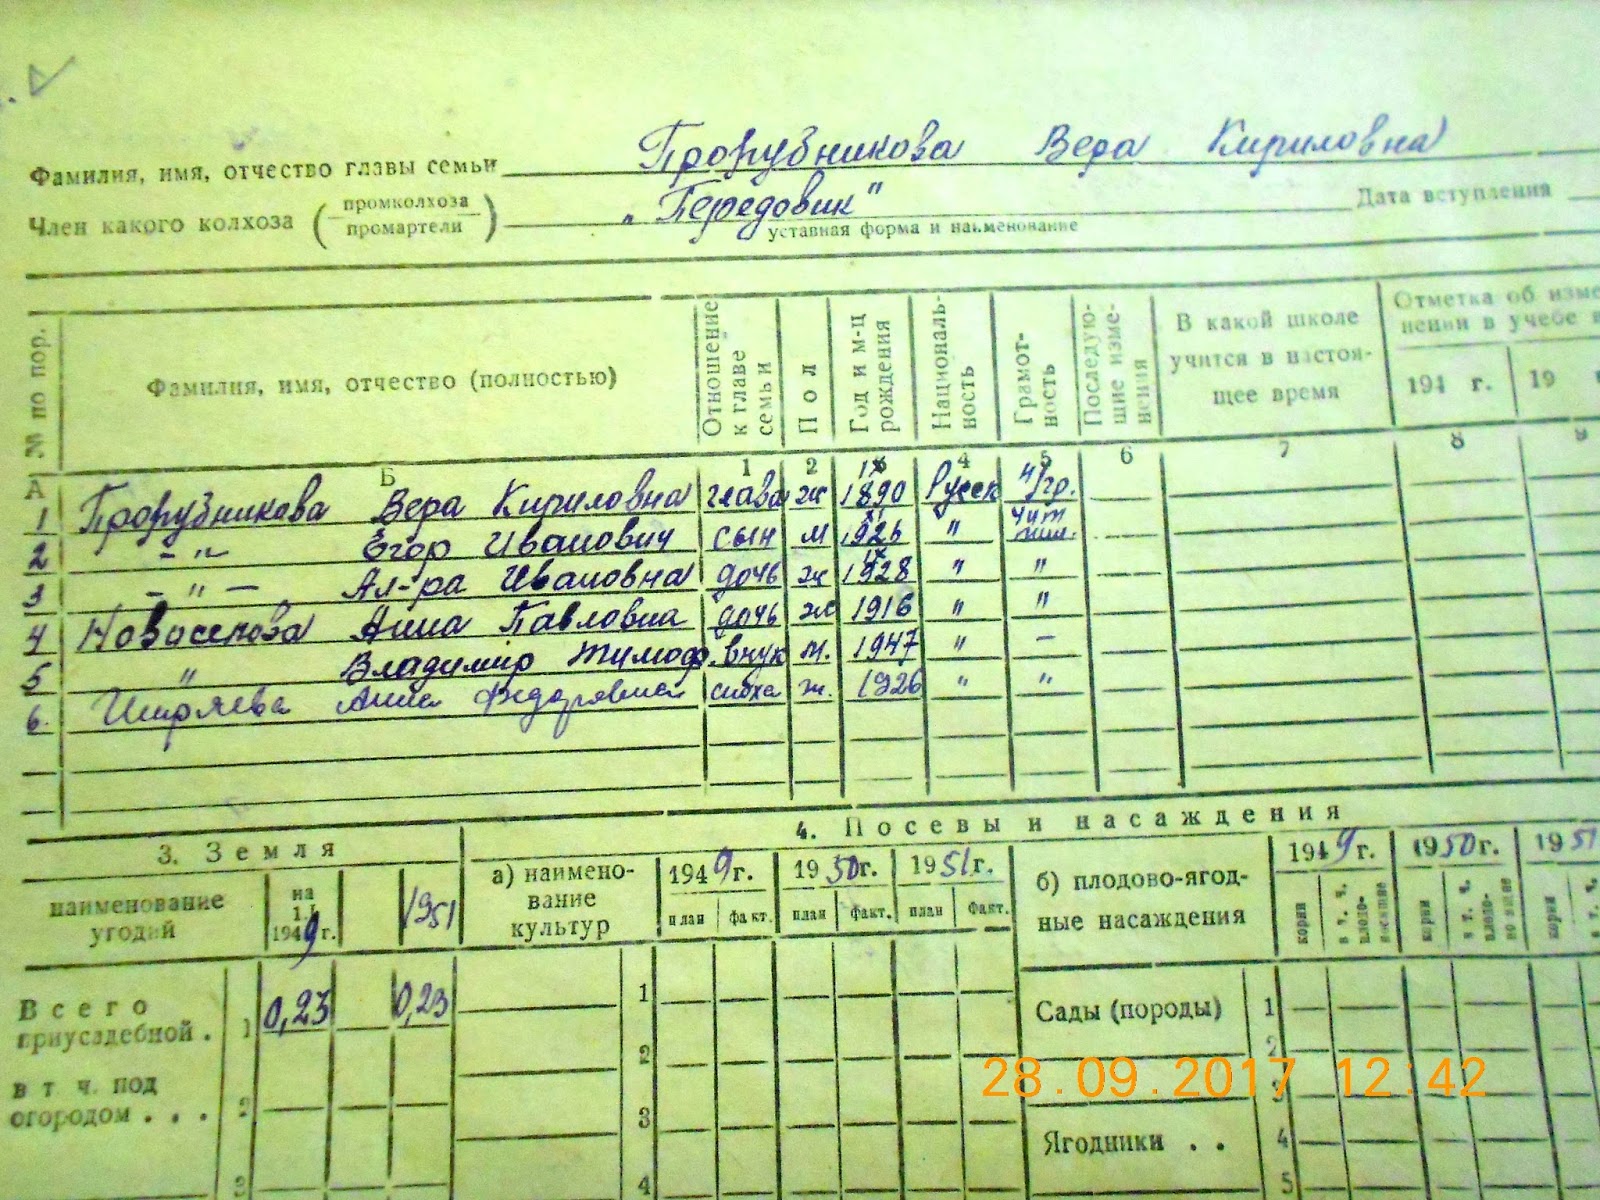 Фамилия, имя, отчество главы семьи Прорубникова Вера Кириловна
Член какого колхоза (промколхоза промартели) „Передовик" Дата вступления
уставная форма и наименование
№ по пор. Фамилия, имя, отчество (полностью) Отношение к главе семьи Пол Год и м-ц рождения Националь-ность Грамот-ность Последую-щие изме-нения В какой школе учится в настоя-щее время Отметка об изме нении в учебе 194 г. 19
А Б 1 2 3 4 5 6 7 8 9
1 Прорубникова Вера Кириловна глава ж 1890 Русск 4/гр.
2 -"- Егор Иванович сын м 1926 "
3 -"- Ал-ра Ивановна дочь ж 1928 " "
4 Анна Павловна дочь ж 1916 " "
5 " Владимир Тимоф. внук м. 1947 " -
6. Анна сноха ж. 1926 " "
3. Земля
4. Посевы и насаждения
наименование угодий на 1.I 1949 г. 1951
а) наимено-вание культур 1949 г. 1950 г. 1951 г.
план факт. план факт. план факт.
б) плодово-ягод-ные насаждения 1949 г. 1950 г. 1951
корни в т. ч. плодо-носящие корни в т. ч. корни в т. ч.
Всего приусадебной . 1 0,23 0,23
в т. ч. под огородом . . . 2
3
1
2
3
4
Сады (породы) 1
2
3
Ягодники . . 4
5
28.09.2017 12:42